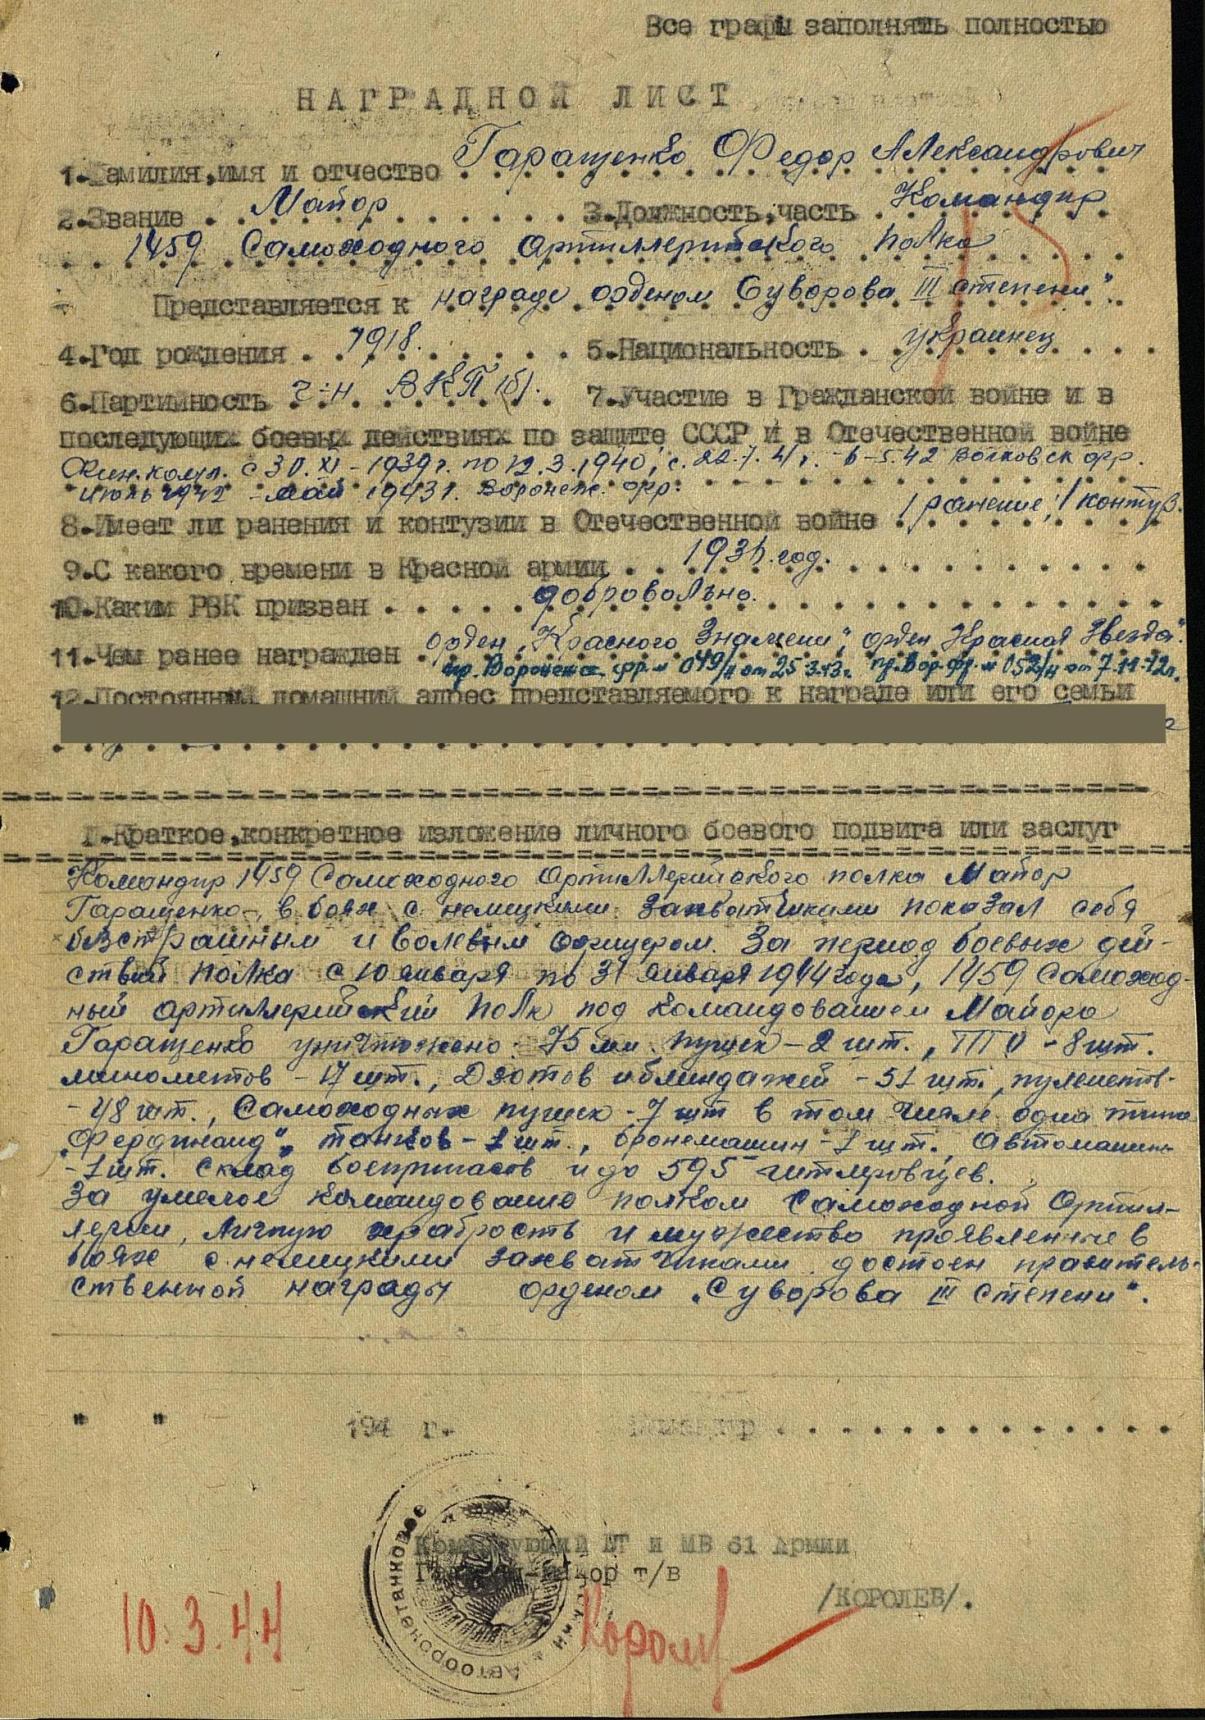 Все графы заполнять полностью
НАГРАДНОЙ ЛИСТ
1.Фамилия,имя и отчество Гаращенко Федор Александрович
2.Звание Майор 3.Должность,часть Командир
1459 Самоходного Артиллерийского полка
Представляется к награде орденом Суворова III степени".
4.Год рождения 1918. 5.Национальность украинец
6.Партийность ч-н ВКП(б). 7.Участие в Гражданской войне и в
последующих боевых действиях по защите СССР и в Отечественной войне
с 30.XI-1939г. по 12.3.1940; с 22.7.41г. - 6-5.42 Волховск фр.
июль 1942 - май 1943г. Воронеж. фр.
8.Имеет ли ранения и контузии в Отечественной войне 1 ранение, 1 контуз.
9.С какого времени в Красной армии год.
10.Каким РВК призван добровольно.
11.Чем ранее награжден орден „Красного Знамени", орден „Красная Звезда".
пр. Воронежск. фр. № 049/н от 25.3.43г. пр. Вор. фр. № 052/н от
12.Постоянный домашний адрес представляемого к награде или его семьи
I.Краткое,конкретное изложение личного боевого подвига или заслуг
Командир 1459 Самоходного Артиллерийского полка Майор
Гаращенко, в боях с немецкими захватчиками показал себя
бесстрашным и волевым офицером. За период боевых дей-
ствий полка с 10 января по 31 января 1944 года, 1459 Самоход-
ный артиллерийский полк под командованием Майора
Гаращенко уничтожено: 75 мм пушек - 2 шт., ПТО - 8 шт.
минометов - 17 шт., Дзотов и блиндажей - 51 шт., пулеметов-
- 48 шт., Самоходных пушек - 7 шт в том числе одна типа
„Фердинанд", танков - 1 шт., бронемашин - 1 шт. Автомашин
- 1 шт. Склад боеприпасов и до 595 гитлеровцев.
За умелое командование полком Самоходной Артил-
лерии, личную храбрость и мужество проявленные в
боях с немецкими захватчиками достоен правитель-
ственной награды орденом „Суворова III степени".
" " 194 г. Командир
Командующий БТ и МВ 61 Армии
Генерал-майор т/в
/КОРОЛЕВ/.
10.3.44 Королев
АВТОБРОНЕТАНКОВОЕ